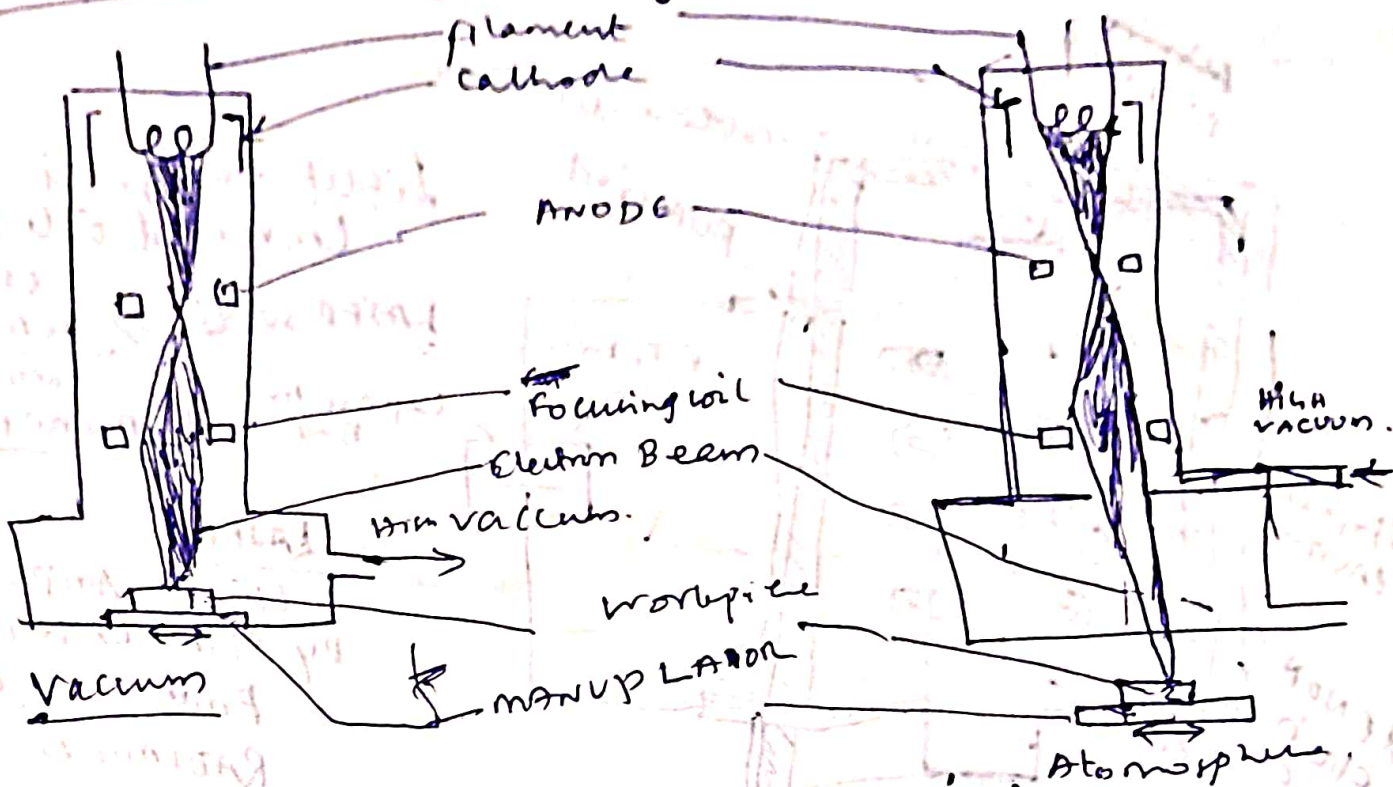 filament
Cathode
ANODE
Focusing coil
Electron Beam
HIGH VACUUM.
High Vaccum.
Workpiece
MANUPLATOR
Vacuum
Atomosphere.